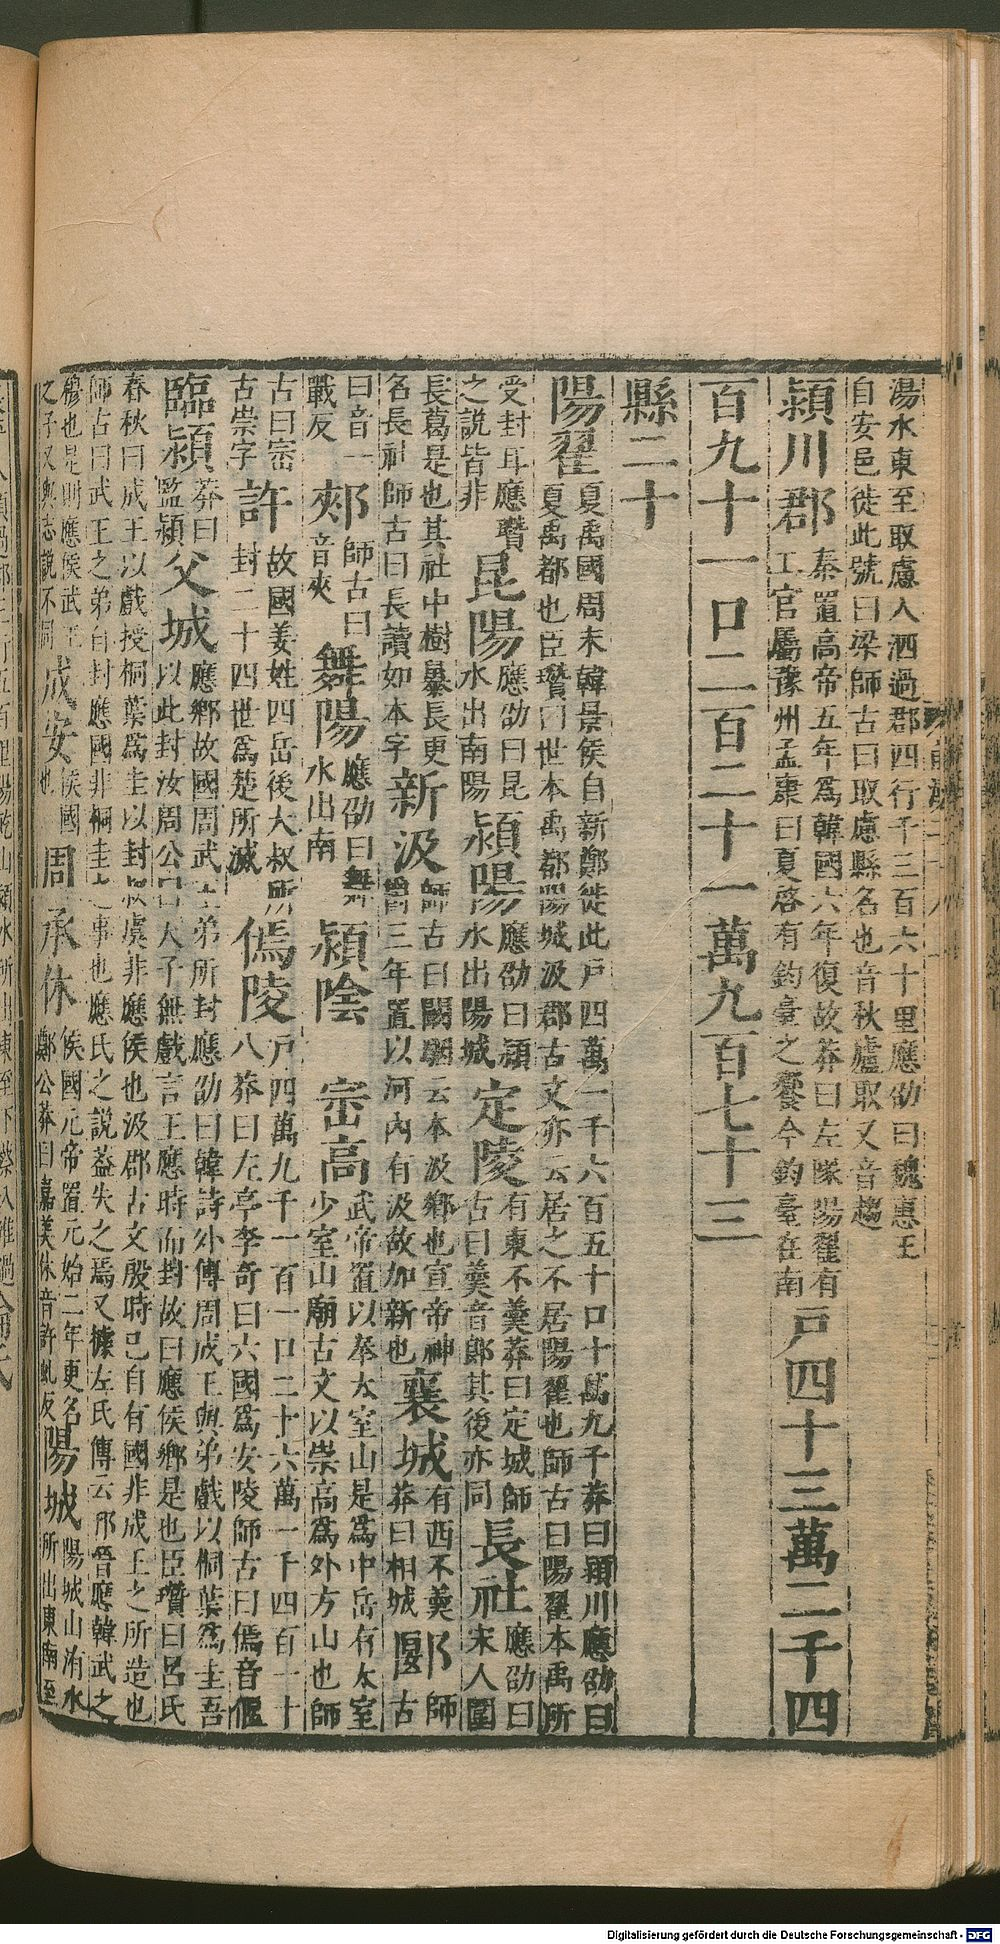 湯水東至取慮入泗過郡四行千三百六十里應劭曰魏惠王
自安邑徙此號曰梁師古曰取慮縣名也音秋廬取又音趨
潁川郡 秦置高帝五年爲韓國六年復故莽曰左隊陽翟有工官屬豫州孟康曰夏啓有鈞臺之饗今鈞臺在南 戸四十三萬二千四
百九十一口二百二十一萬九百七十三
縣二十
陽翟 夏禹國周末韓景侯自新鄭徙此戸四萬一千六百五十口十萬九千莽曰潁川應劭曰夏禹都也臣瓚曰世本禹都陽城汲郡古文亦云居之不居陽翟也師古曰陽翟本禹所
受封耳應瓚之說皆非 昆陽 應劭曰昆水出南陽 潁陽 應劭曰潁水出陽城 定陵 有東不羹莽曰定城師古曰羹音郎其後亦同 長社 應劭曰宋人圍
長葛是也其社中樹暴長更名長社師古曰長讀如本字 新汲 師古曰闞駰云本汲鄉也宣帝神爵三年置以河內有汲故加新也 襄城 有西不羹莽曰相城 郾 師古
曰音一戰反 郟 師古曰音夾 舞陽 應劭曰舞水出南 潁陰 崈高 武帝置以奉太室山是爲中岳有太室少室山廟古文以崇高爲外方山也師
古曰崈古崇字 許 故國姜姓四岳後大叔所封二十四世爲楚所滅 傿陵 戸四萬九千一百一口二十六萬一千四百一十八莽曰左亭李奇曰六國爲安陵師古曰傿音偃
臨潁 莽曰監潁 父城 應鄉故國周武王弟所封應劭曰韓詩外傳周成王與弟戲以桐葉爲圭吾以此封汝周公曰天子無戲言王應時而封故曰應侯鄉是也臣瓚曰呂氏
春秋曰成王以戲授桐葉爲圭以封叔虞非應侯也汲郡古文殷時已自有國非成王之所造也
師古曰武王之弟自封應國非桐圭之事也應氏之說蓋失之焉又據左氏傳云邘晉應韓武之
穆也是則應侯武王之子又與志說不同 成安 侯國也 周承休 侯國元帝置元始二年更名鄭公莽曰嘉美休音許虬反 陽城 陽城山洧水所出東南至
Digitalisierung gefördert durch die Deutsche Forschungsgemeinschaft - DFG